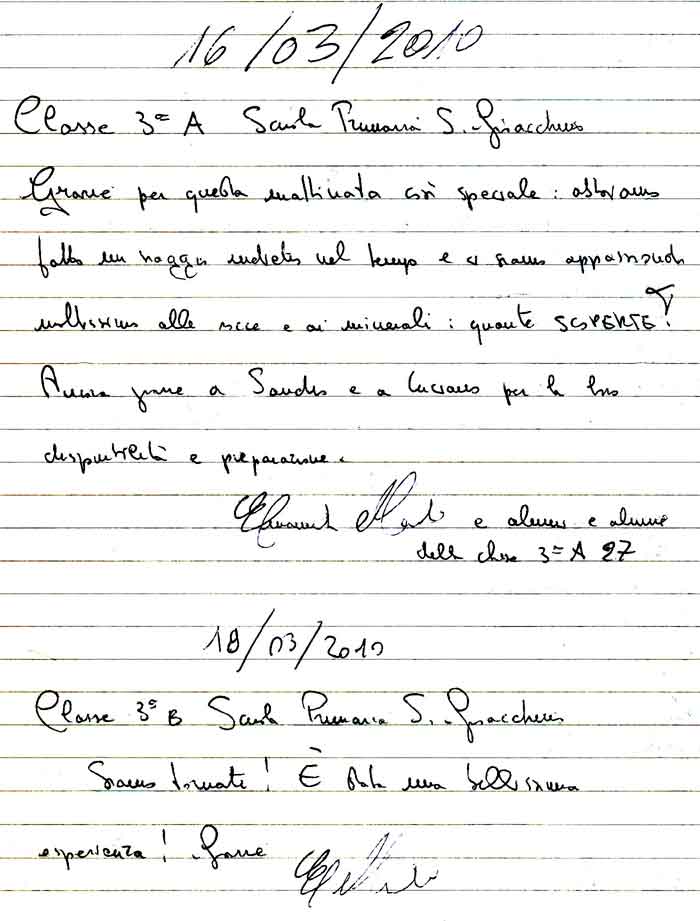 16/03/2010
Classe 3ª A Scuola Primaria S. Gioacchino
Grazie per questa mattinata così speciale: abbiamo
fatto un viaggio indietro nel tempo e ci siamo appassionati
moltissimo alle rocce e ai minerali: quante SCOPERTE!
Ancora grazie a Sandro e a Luciano per la loro
disponibilità e preparazione.
e alunni e alunne
della classe 3ª A 27
18/03/2010
Classe 3ª B Scuola Primaria S. Gioacchino
Siamo tornati! È stata una bellissima
esperienza! Grazie